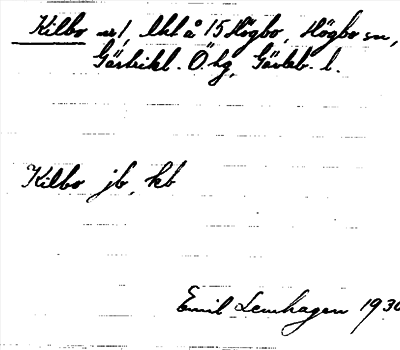 Kilbo nr 1, lht å 15 Högbo, Högbo sn,
Gästrikl. Ö. tg, Gävleb. l.
Kilbo jb, kb
Emil Lenhagen 1930